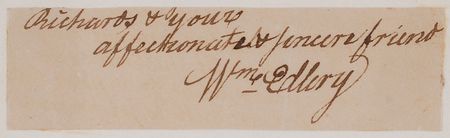 Richards & your
affectionate & sincere friend
Wm Ellery